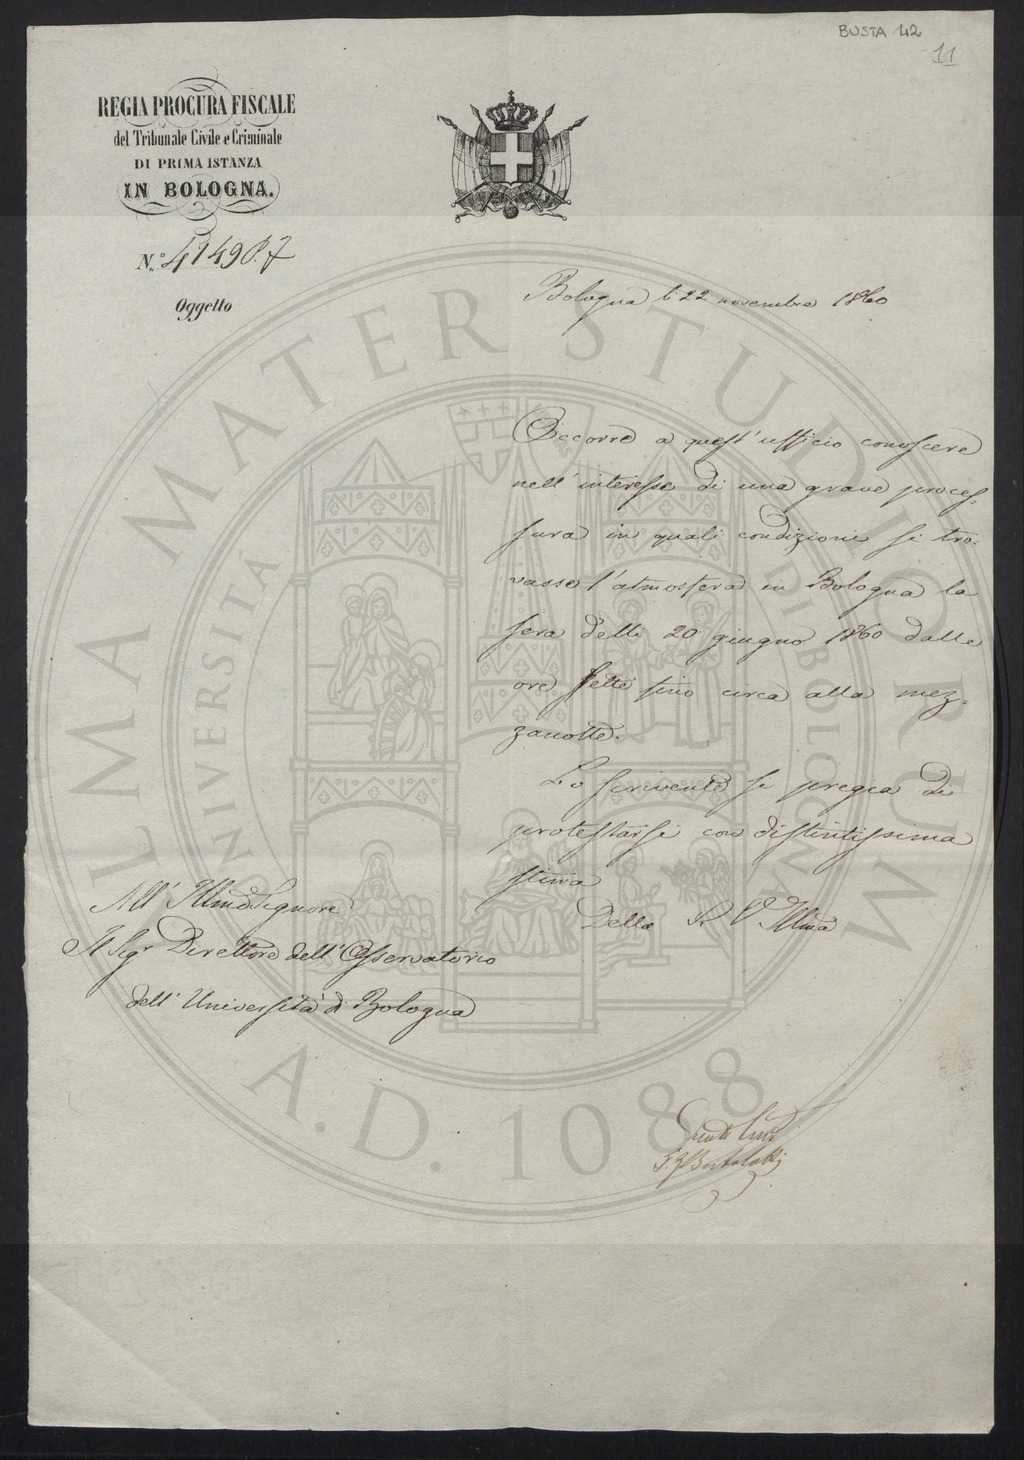 BUSTA 42
11
REGIA PROCURA FISCALE
del Tribunale Civile e Criminale
DI PRIMA ISTANZA
IN BOLOGNA.
N.° 4149 P. 7
Oggetto
Bologna li 22 novembre 1860
Occorre a quest'ufficio conoscere
nell'interesse di una grave proces=
sura in quali condizioni si tro=
vasse l'atmosfera in Bologna la
sera delli 20 giugno 1860 dalle
ore sette fino circa alla mez=
zanotte.
Lo scrivente si pregia di
protestarsi con distintissima
stima
Della S. V. Illma
All' Illmo Signore
Il Sigr Direttore dell'Osservatorio
dell'Università di Bologna
ALMA MATER STUDIORUM
UNIVERSITÀ DI BOLOGNA
A.D. 1088